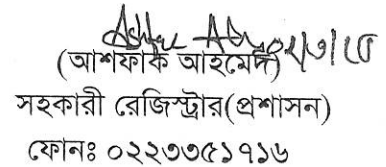 (আশফাক আহমেদ)
সহকারী রেজিস্ট্রার(প্রশাসন)
ফোনঃ ০২২৩৩৫১৭১৬